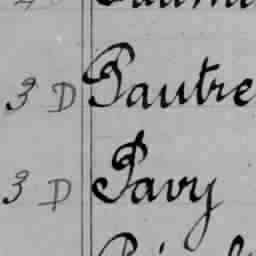 3 D Pautre
3 D Pavy